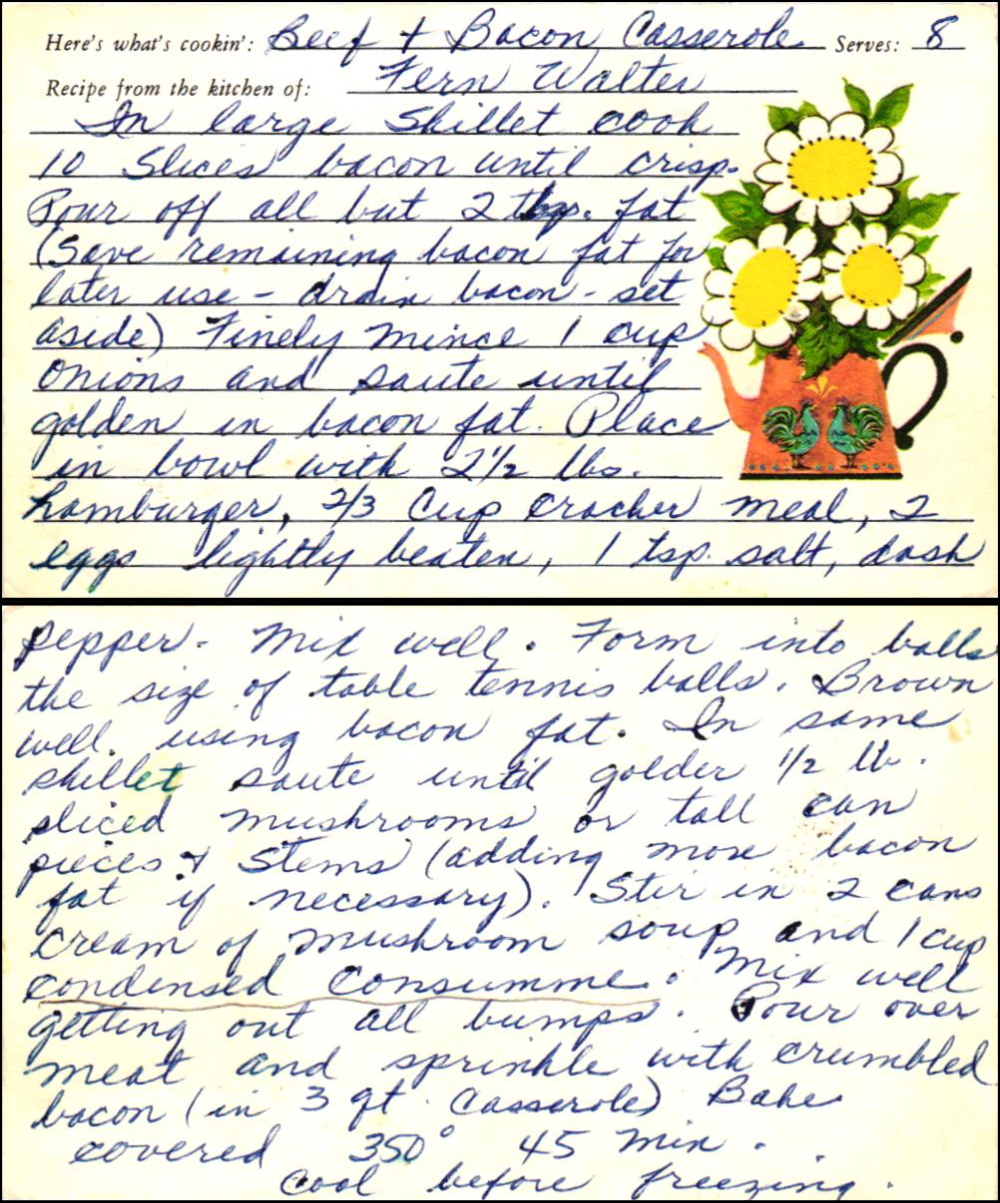 Here's what's cookin': Beef + Bacon Casserole Serves: 8
Recipe from the kitchen of: Fern Walter
In large skillet cook
10 Slices bacon until crisp.
Pour off all but 2 tbsp. fat
(Save remaining bacon fat for
later use - drain bacon - set
aside) Finely mince 1 cup
Onions and saute until
golden in bacon fat. Place
in bowl with 2 1/2 lbs.
hamburger, 2/3 Cup Cracker meal, 2
eggs lightly beaten, 1 tsp. salt, dash
pepper - Mix well. Form into balls
the size of table tennis balls. Brown
well. using bacon fat. In same
skillet saute until golder 1/2 lb.
sliced mushrooms or tall can
pieces + Stems (adding more bacon
fat if necessary). Stir in 2 cans
Cream of mushroom soup and 1 cup
condensed Consumme. Mix well
getting out all bumps. Pour over
meat and sprinkle with crumbled
bacon (in 3 qt. Casserole) Bake
covered 350° 45 min.
Cool before freezing.